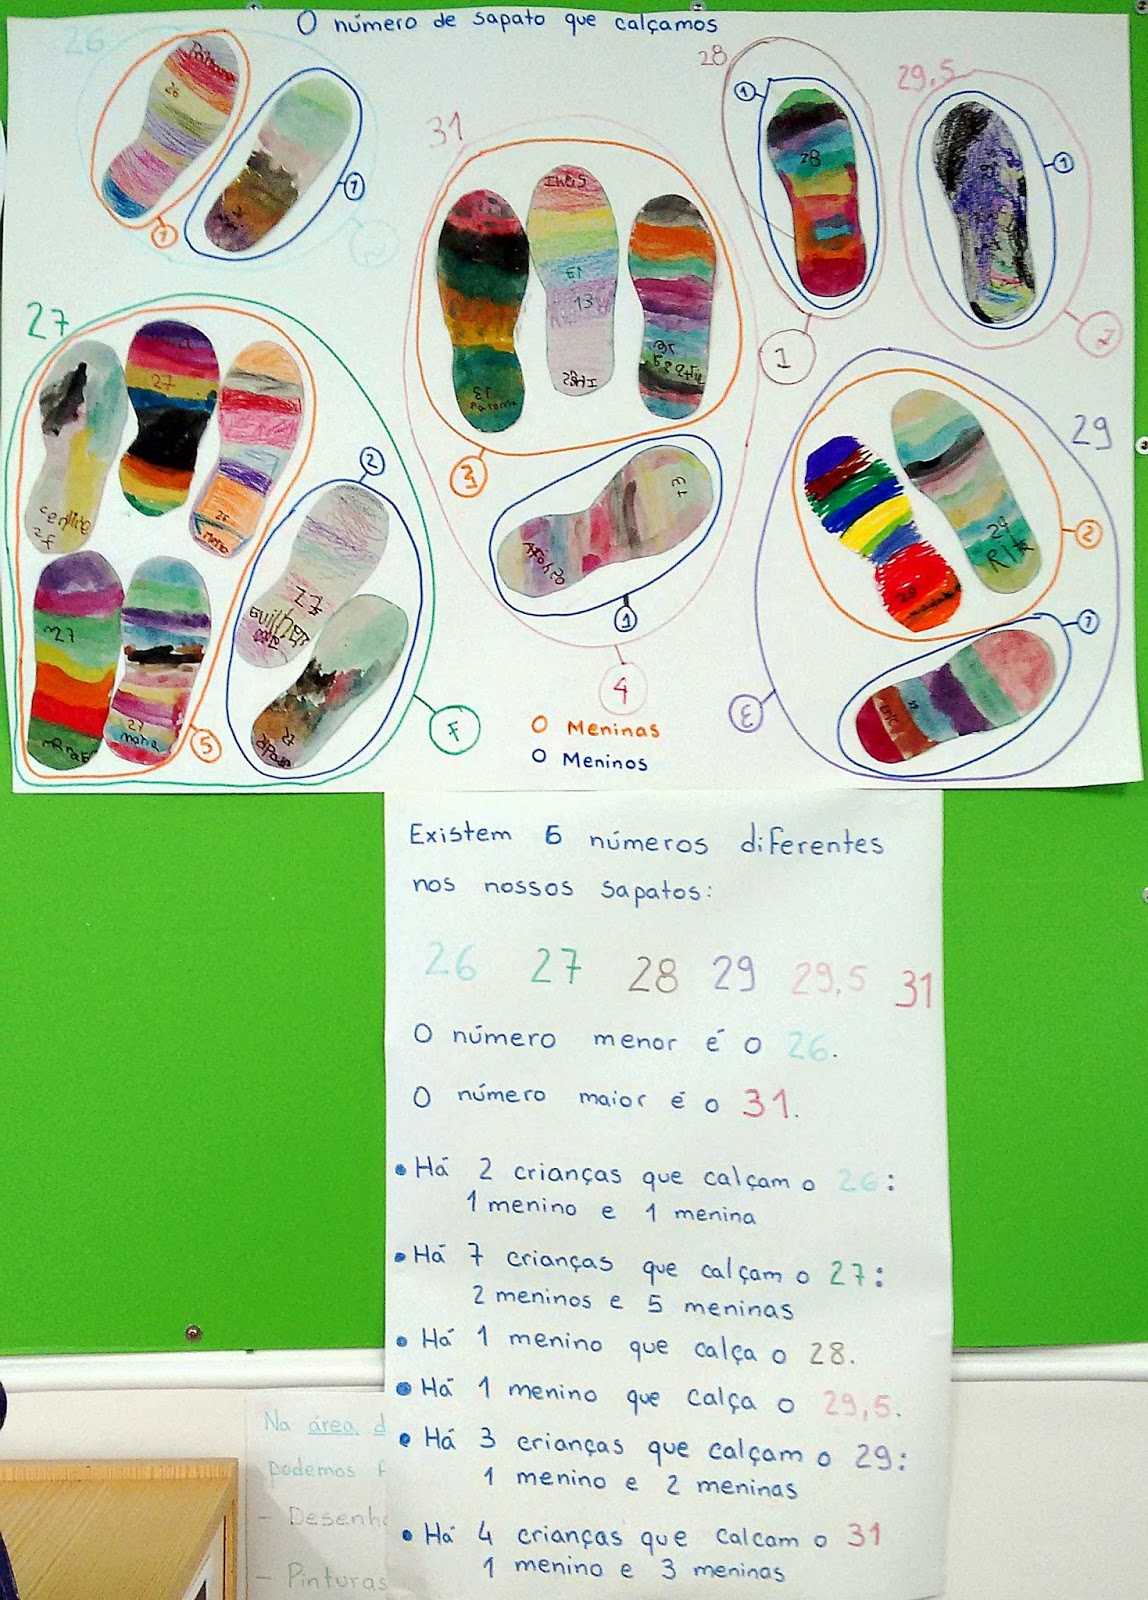 O número de sapato que calçamos
26
26
1
1
31
Inês
13
3
1
4
28
1
28
1
29,5
1
27
27
27
Maria
27
maria
5
2
27
27
29
2
29
RITA
1
O Meninas
O Meninos
Existem 6 números diferentes
nos nossos sapatos:
26 27 28 29 29,5 31
O número menor é o 26.
O número maior é o 31.
• Há 2 crianças que calçam o 26:
1 menino e 1 menina
• Há 7 crianças que calçam o 27:
2 meninos e 5 meninas
• Há 1 menino que calça o 28.
• Há 1 menino que calça o 29,5.
• Há 3 crianças que calçam o 29:
1 menino e 2 meninas
• Há 4 crianças que calcam o 31
1 menino e 3 meninas
Na área d
podemos f
- Desenho
- Pinturas